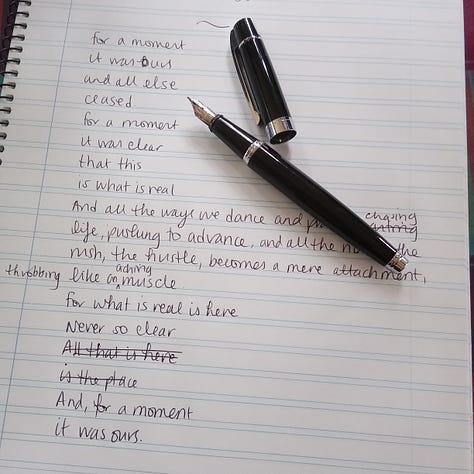 for a moment
it was ours
and all else
ceased
for a moment
it was clear
that this
is what is real
And all the ways we dance and chasing
life, pushing to advance, and all the the
rush, the hustle, becomes a mere attachment,
throbbing like an aching muscle.
for what is real is here
Never so clear
All that is here
is the place
And, for a moment
it was ours.